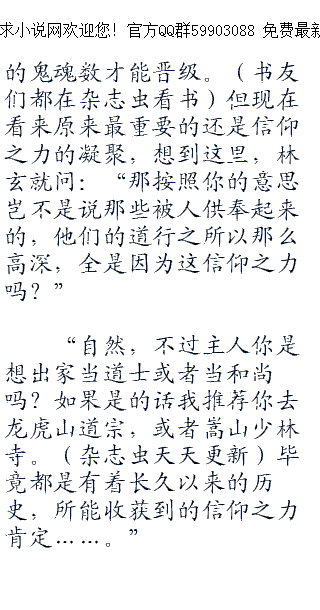 求小说网欢迎您！官方QQ群59903088 免费最新
的鬼魂数才能晋级。（书友
们都在杂志虫看书）但现在
看来原来最重要的还是信仰
之力的凝聚，想到这里，林
玄就问：“那按照你的意思
岂不是说那些被人供奉起来
的，他们的道行之所以那么
高深，全是因为这信仰之力
吗？”
“自然，不过主人你是
想出家当道士或者当和尚
吗？如果是的话我推荐你去
龙虎山道宗，或者嵩山少林
寺。（杂志虫天天更新）毕
竟都是有着长久以来的历
史，所能收获到的信仰之力
肯定……。”